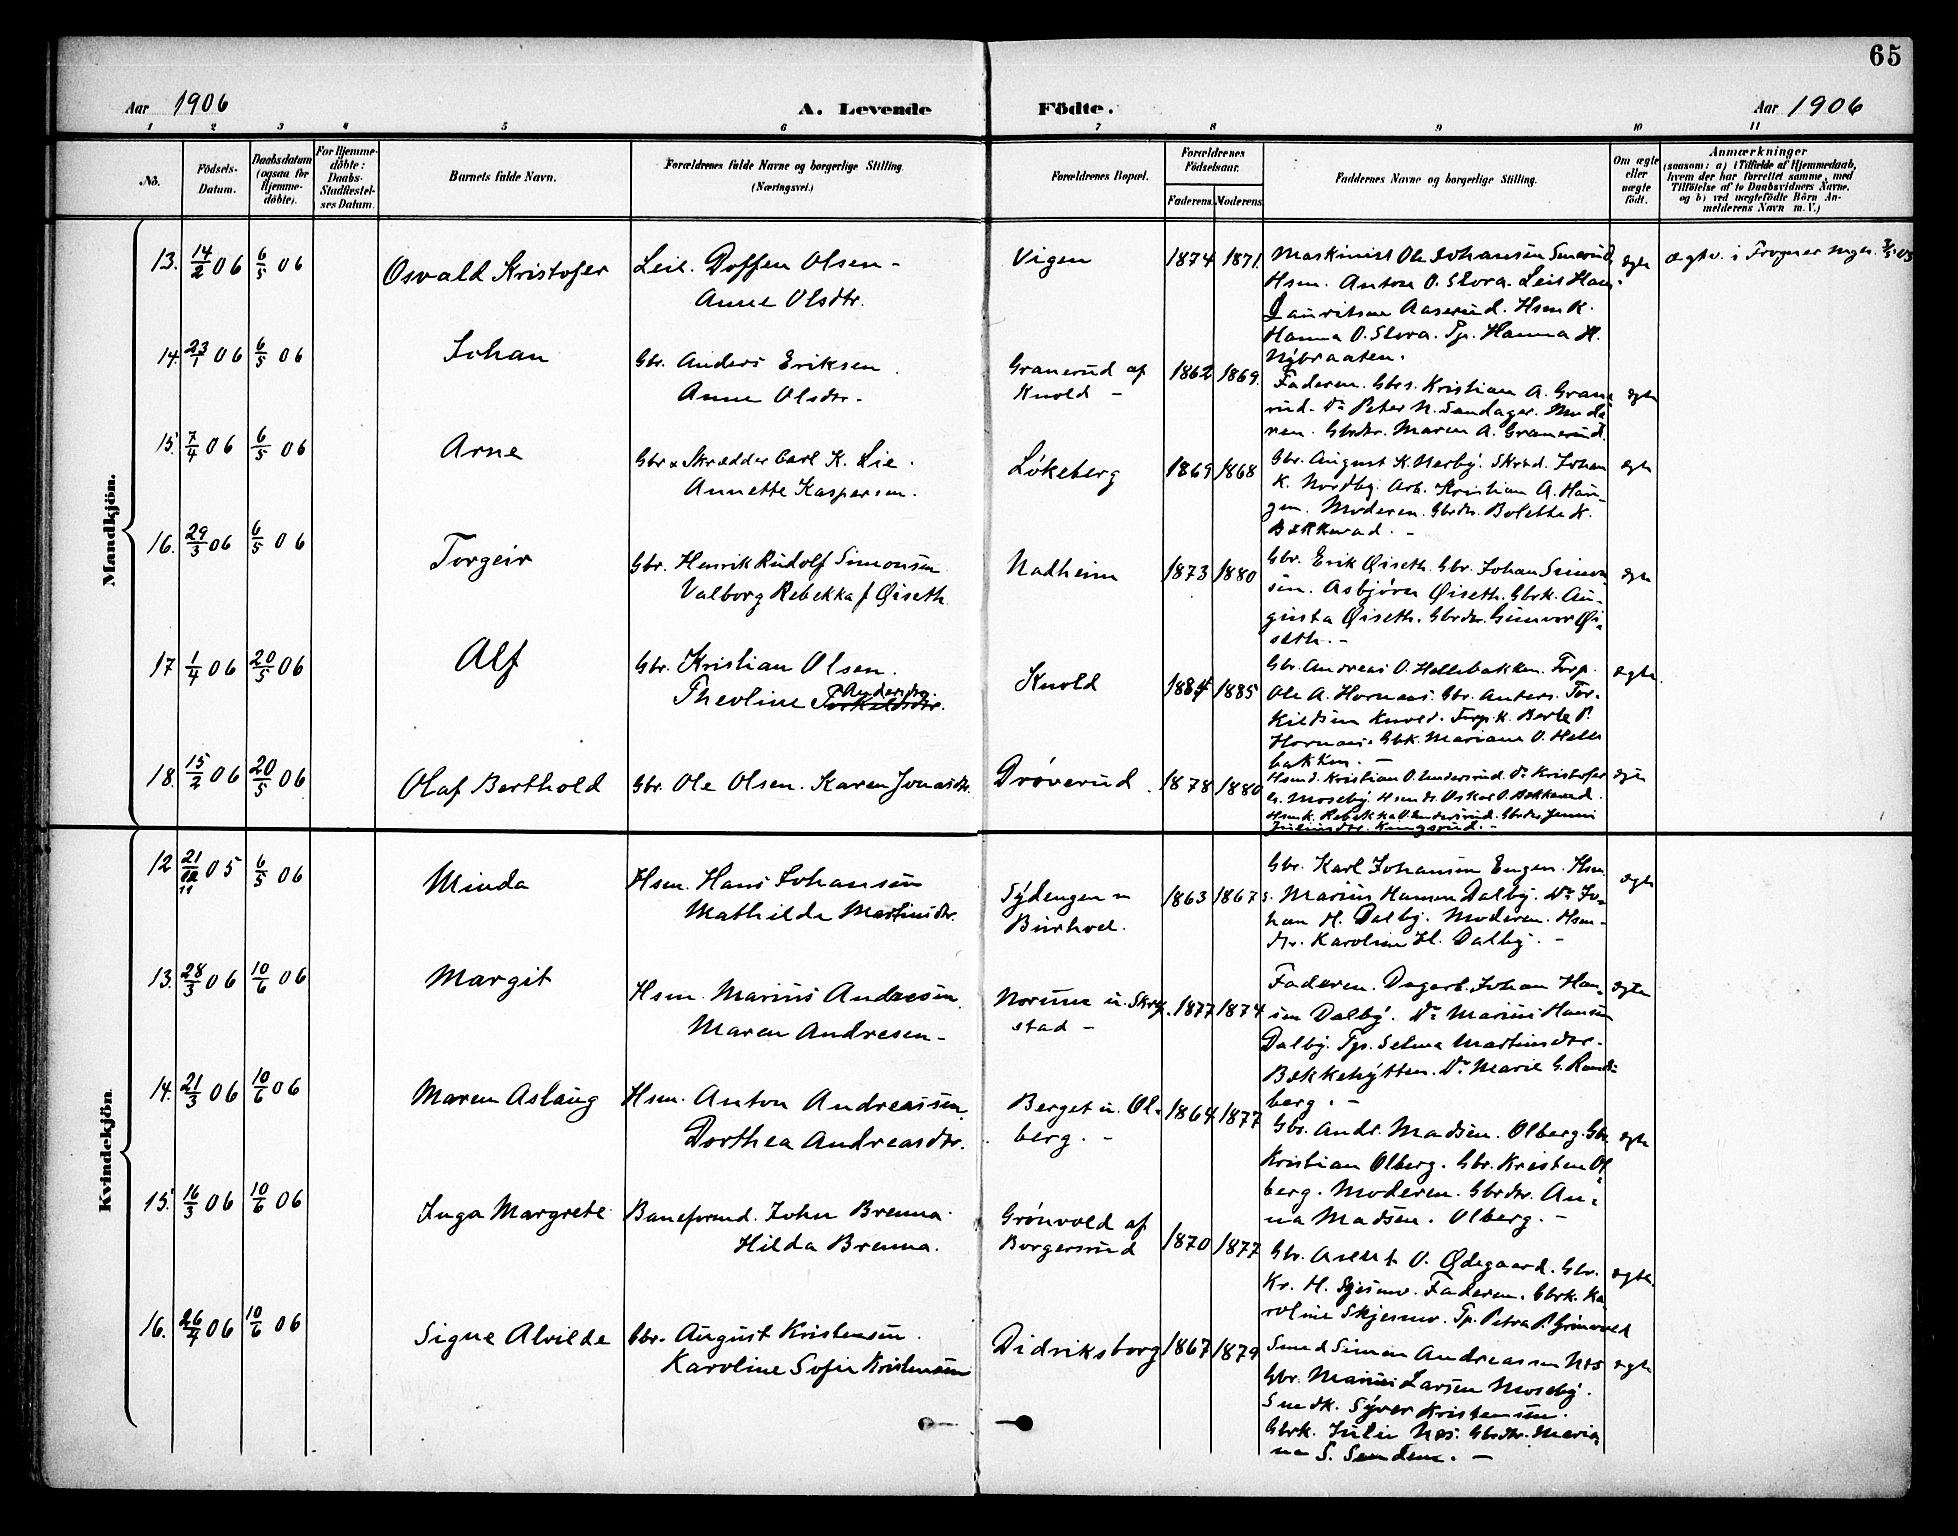 65
Aar 1906
A. Levende Födte.
Aar 1906
1 2 3 4 5 6 7 8 9 10 11
No.
Födsels-Datum.
Daabsdatum (ogsaa for Hjemme-döbte).
For Hjemme-döbte: Daabs-Stadfæstel-ses Datum.
Barnets fulde Navn.
Forældrenes fulde Navne og borgerlige Stilling (Næringsvei.)
Forældrenes Bopæl.
Forældrenes Födselsaar.
Faderens Moderens
Faddernes Navne og borgerlige Stilling.
Om ægte eller uægte födt.
Anmærkninger
(saasom: a) i Tilfælde af Hjemmedaab, hvem der har forrettet samme, med Tilföielse af to Daabsvidners Navne, og b) ved uægtefödte Börn An-melderens Navn m. V.)
Mandkjön.
13. 14/2 06 6/5 06 Osvald Kristofer
Leil. Doffen Olsen -
Anne Olsdtr.
Vigen 1874 1871.
Maskinist Ole Johansen
Hsm. Anton O. Slora. Leil Hans
Lauritsen Aaserud. Hsmk.
Hanna O. Slora. Tp. Hanna H.
Nybraaten.
ægte
14. 23/1 06 6/5 06 Johan
Gbr. Anders Eriksen
Anne Olsdtr.
Granerud af
Knold -
1862 1869.
Faderen. Gbrs. Kristian A. Grane
rud. Do Peter N. Sandager. Mode
ren. Gbrdtr. Maren A. Granerud.
ægte
15. 7/4 06 6/5 06 Arne
Gbr & Skrædder Carl K. Lie.
Annette Kaspersen.
Lökeberg 1869 1868
Gbr. August K. Nerby. Skræd. Johan
K. Nordby Arb. Kristian A. Hau-
gen. Moderen. Gbrdtr. Bolette K.
Bækkevad. -
ægte
16. 29/3 06 6/5 06 Torgeir
Gbr. Henrik Rudolf Simonsen
Valborg Rebekka f. Øiseth
Nadheim 1873 1880
Gbr. Erik Øiseth. Gbr. Johan Simon
sen. Asbjørn Øiseth. Gbrk. Au-
gusta Øiseth. Gbrdtr. Gunvor Øi-
seth. -
ægte
17 1/4 06 20/5 06 Alf
Gbr. Kristian Olsen.
Theoline Torkildsdtr. Andersen.
Knold 1884 1885
Gbr. Andreas O. Hellebakken. Torp.
Ole A. Hornaas. Gbr. Anders. Tor-
kildsen Knold. Torpk. Berte P.
Hornaas. Gbk. Mariane O. Helle
bakken. -
ægte.
18. 15/2 06 20/5 06 Olaf Berthold
Gbr. Ole Olsen. Karen Jonasdtr.
Dröverud. 1878 1880
Hsmd. Kristian O. Do Kristofer
Moseby. Oskar O. Bækkevad.
Hsmk. Rebekka Gbrdtr Jenni
ægte
Kvindekjön.
12 21/11 05 6/5 06 Minda
Hsm. Hans Johansen
Mathilde Martinsdtr.
Sydengen u
Burhol.
1863 1867
Gbr. Karl Johansen Engen. Hsm
s. Marius Hansen Dalby. Do Jo-
han H. Dalby. Moderen. Hsm-
dtr. Karoline H. Dalby. -
ægte
13. 28/3 06 10/6 06 Margit
Hsm. Marius Andresen
Maren Andresen -
Norum u. Skry
stad -
1877 1874
Faderen. Dagarb. Johan Han-
sen Dalby. Do Marius Hansen
Dalby. Tp. Selma Martinsdtr.
Bækkehytten. Do Marie G. Rand-
berg. -
ægte
14. 21/3 06 10/6 06 Maren Aslaug
Hsm. Anton Andreassen.
Dorthea Andreasdtr.
Berget u. Ol-
berg. -
1864 1877
Gbr. Andr. Madsen. Olberg. Gbr
Kristian Olberg. Gbr. Kristen Ol
berg. Moderen. Gbrdtr. An-
na Madsen. Olberg. -
ægte
15. 16/3 06 10/6 06 Inga Margrete
Baneformd. John Brenna
Hilda Brenna.
Grönvold af
Borgersrud
1870 1877
Gbr. O. Ødegaard. Gbr.
Kr. H. Faderen. Gbrk. Ka
roline Skjennr. Tp. Petra P. Grönvold
ægte.
16. 26/4 06 10/6 06 Signe Alvilde
Gbr. August Kristensen.
Karoline Sofie Kristensen
Didriksborg 1867 1879
Smed Simen Andreassen Næs
Gbr. Marius Larsen Moseby.
Smdk. Syver Kristensen.
Gbrk. Julie Næs. Gbrdtr. Maria
na S. -
ægte